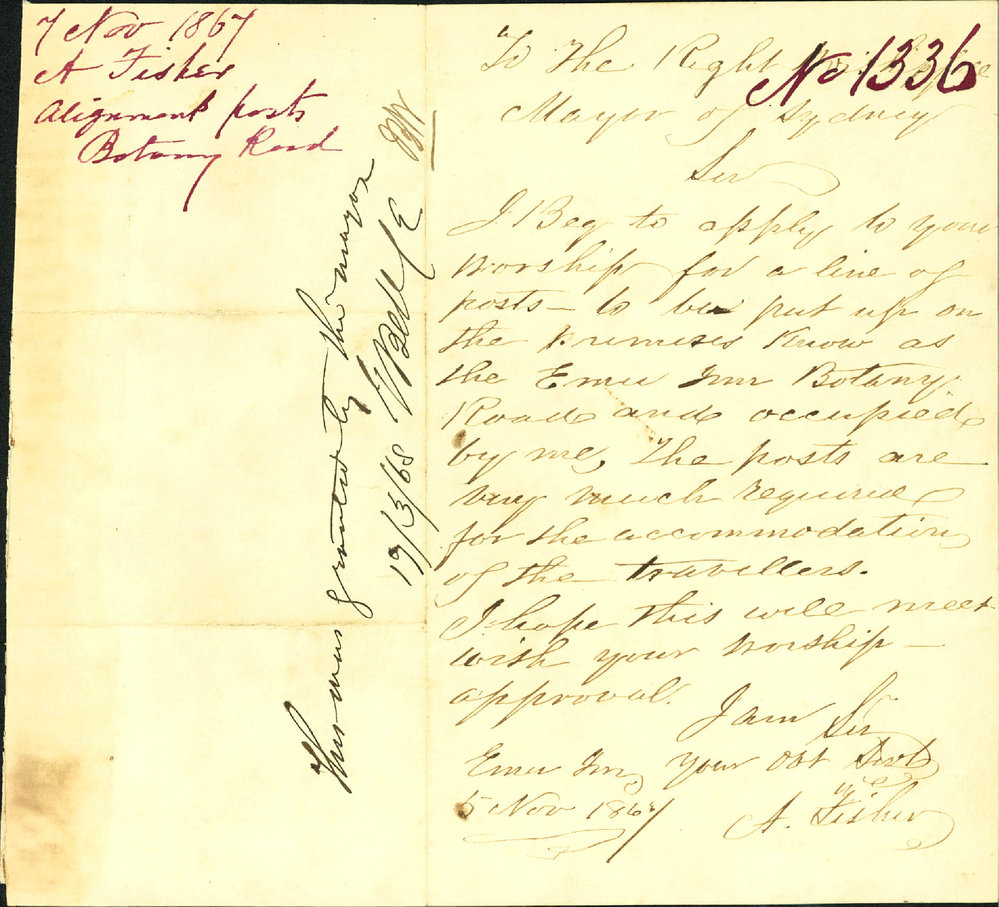 7 Nov 1867
A Fisher
Alignment posts
Botany Road
This was granted by the mayor
19/3/68 Bell CE
No 1336
To The Right
Mayor of Sydney
Sir
I Beg to apply to your
worship for a line of
posts - to be put up on
the premises Know as
the Emu Inn Botany
Road and occupied
by me, The posts are
very much required
for the accommodation
of the travellers.
I hope this will meet
with your worship -
approval.
I am Sir
Your Obt Servt
A. Fisher
Emu Inn
5 Nov 1867